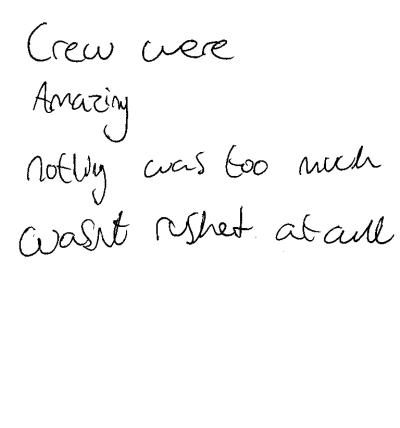 Crew were
Amazing
nothing was too much
wasnt rushet at all